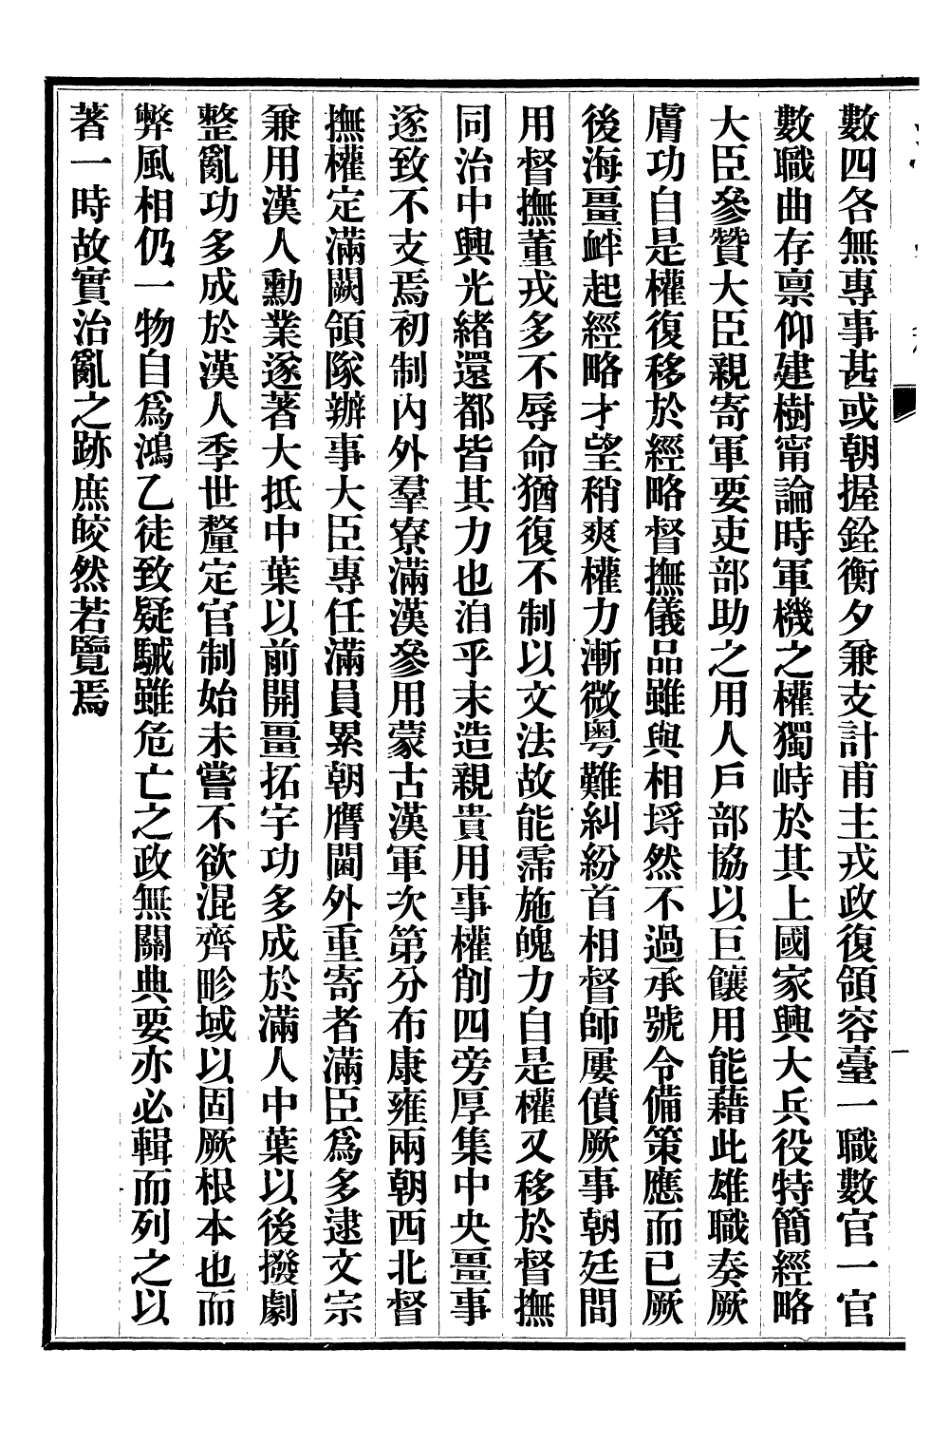 數四各無專事甚或朝握銓衡夕兼支計甫主戎政復領容臺一職數官一官
數職曲存禀仰建樹甯論時軍機之權獨峙於其上國家興大兵役特簡經略
大臣參贊大臣親寄軍要吏部助之用人戶部協以巨饟用能藉此雄職奏厥
膚功自是權復移於經略督撫儀品雖與相埒然不過承號令備策應而已厥
後海畺衅起經略才望稍爽權力漸微粤難糾紛首相督師屢僨厥事朝廷間
用督撫董戎多不辱命猶復不制以文法故能霈施魄力自是權又移於督撫
同治中興光緒還都皆其力也洎乎末造親貴用事權削四旁厚集中央畺事
遂致不支焉初制內外羣寮滿漢參用蒙古漢軍次第分布康雍兩朝西北督
撫權定滿闕領隊辦事大臣專任滿員累朝膺閫外重寄者滿臣爲多逮文宗
兼用漢人勳業遂著大抵中葉以前開畺拓宇功多成於滿人中葉以後撥劇
整亂功多成於漢人季世釐定官制始未嘗不欲混齊畛域以固厥根本也而
弊風相仍一物自爲鴻乙徒致疑駴雖危亡之政無關典要亦必輯而列之以
著一時故實治亂之跡庶皎然若覽焉